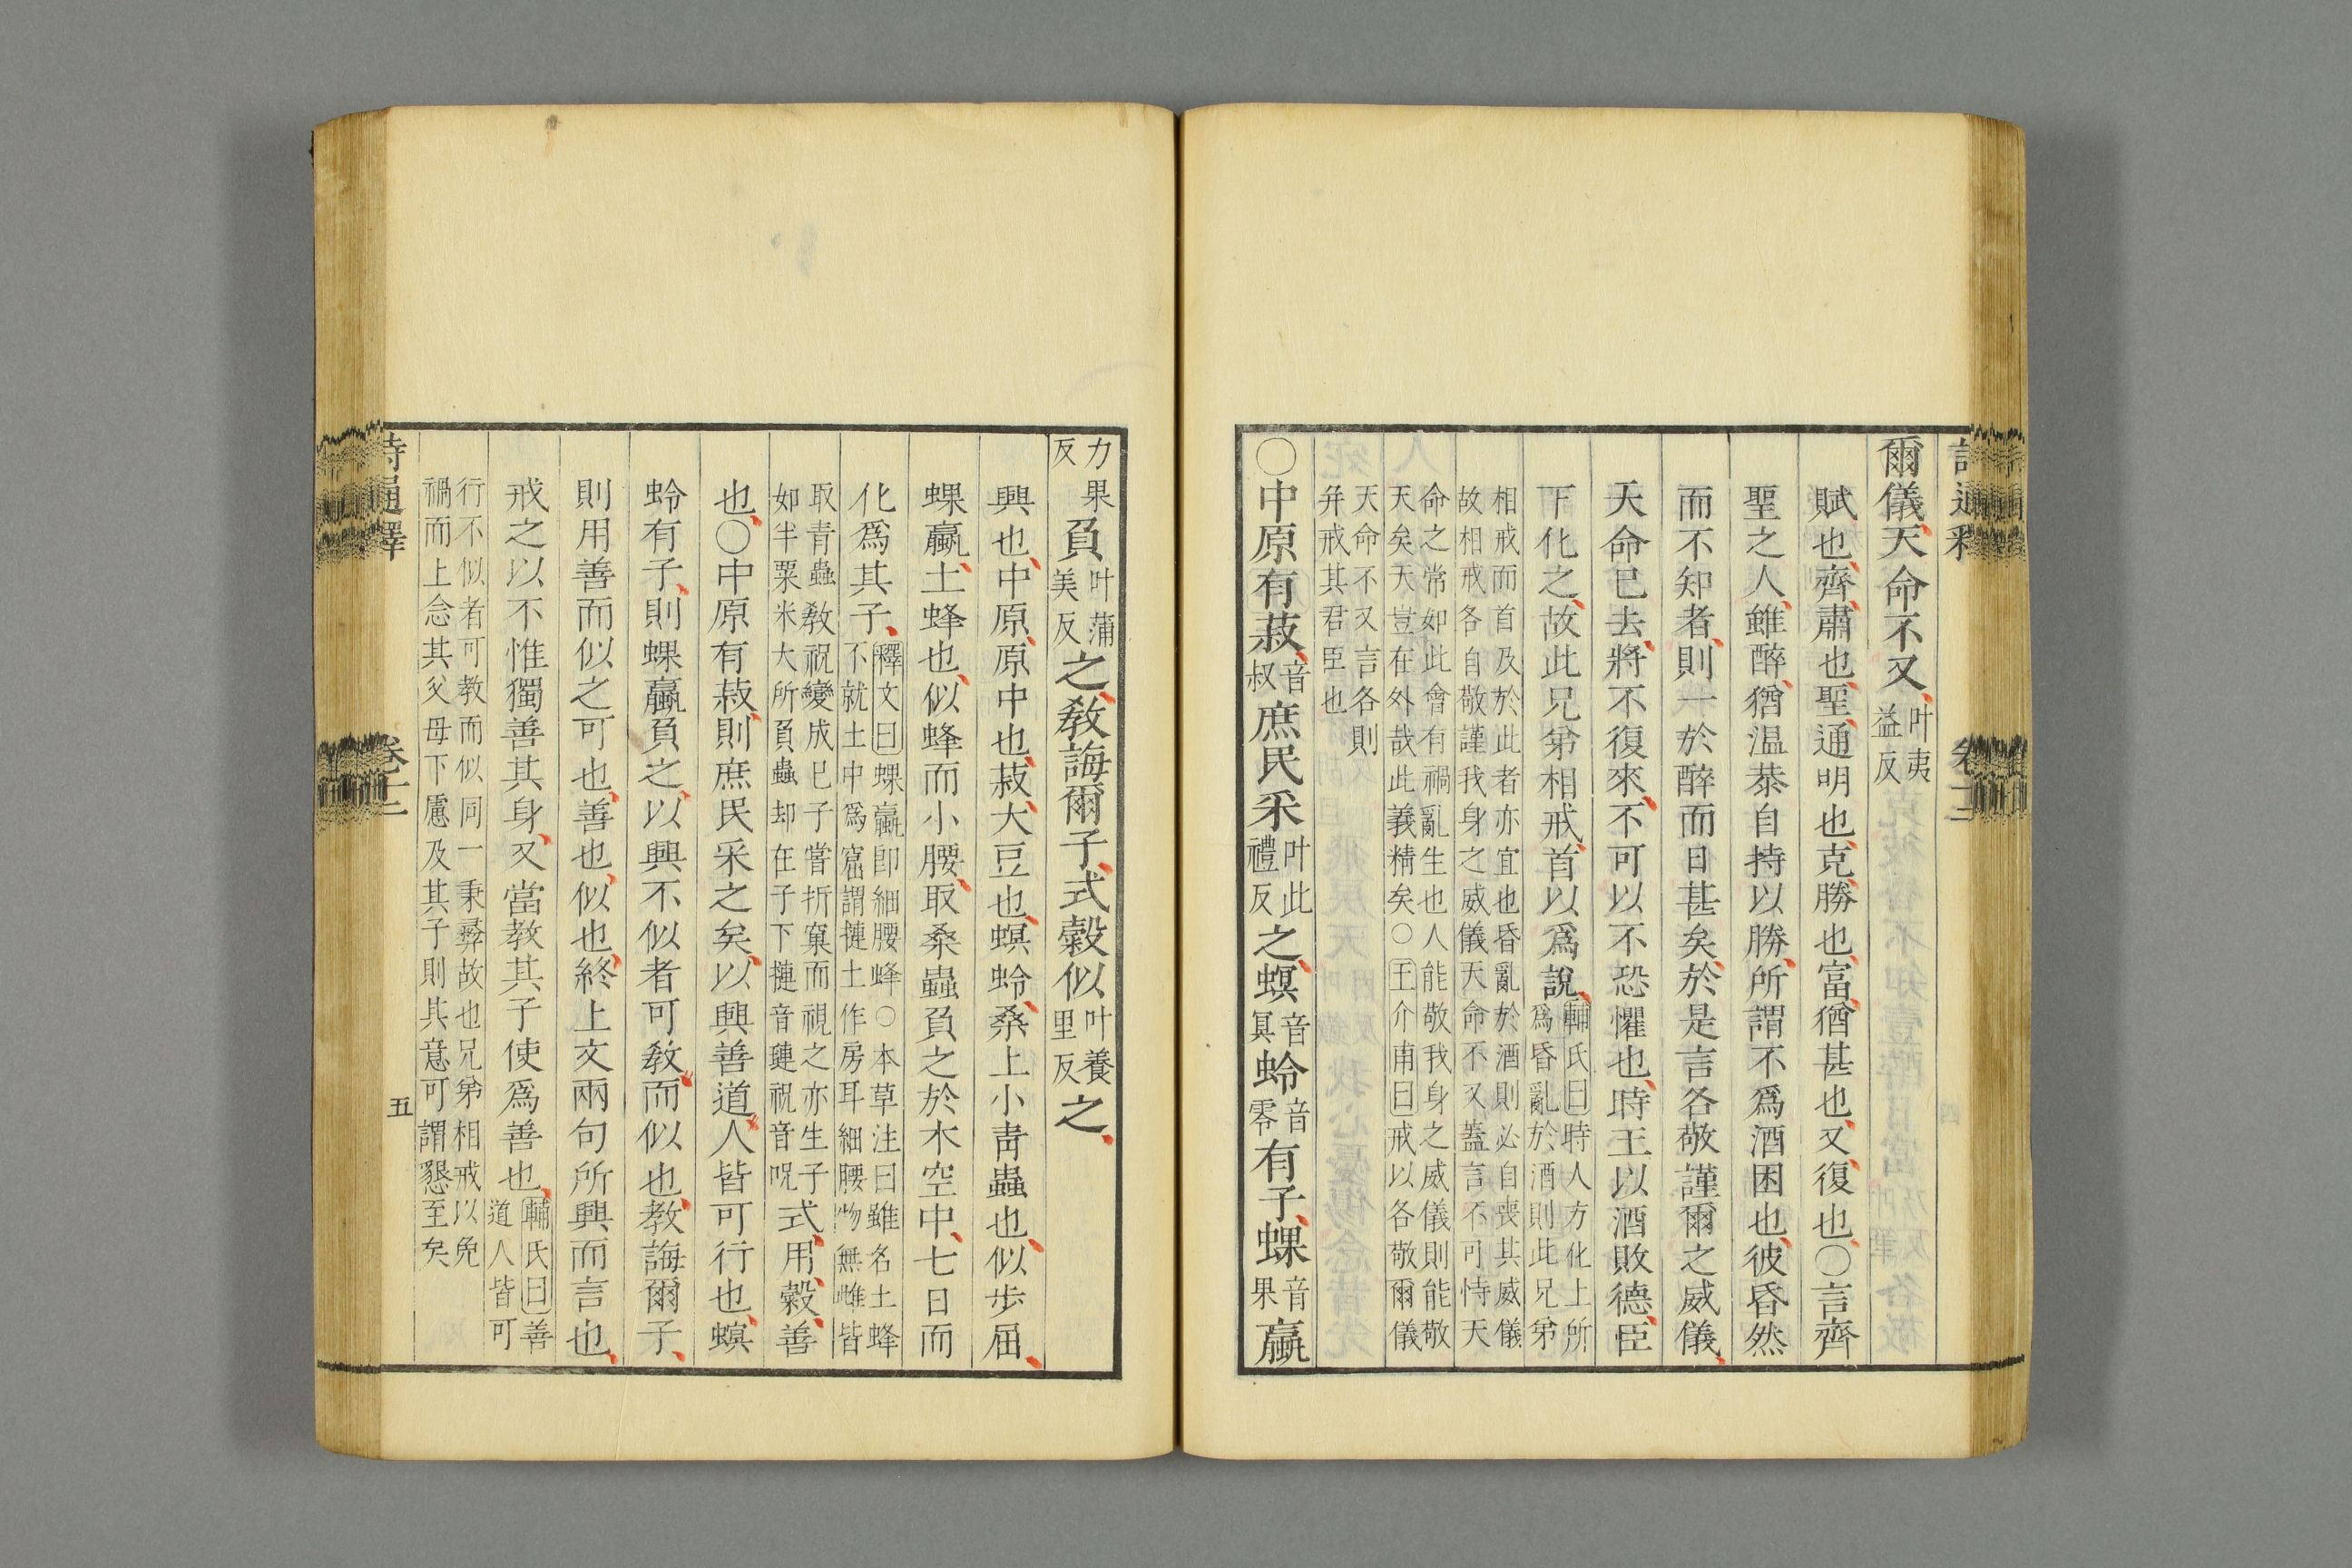 爾儀天命不又叶夷益反
賦也齊肅也聖通明也克勝也富猶甚也又復也○言齊
聖之人雖醉猶溫恭自持以勝所謂不爲酒困也彼昏然
而不知者則一於醉而日甚矣於是言各敬謹爾之威儀
天命已去將不復來不可以不恐懼也時王以酒敗德臣
下化之故此兄弟相戒首以爲說輔氏曰時人方化上所
爲昏亂於酒則此兄弟
相戒而首及於此者亦宜也昏亂於酒則必自喪其威儀
故相戒各自敬謹我身之威儀天命不又蓋言不可恃天
命之常如此會有禍亂生也人能敬我身之威儀則能敬
天矣天豈在外哉此義精矣○王介甫曰戒以各敬爾儀
天命不又言各則
弁戒其君臣也
○中原有菽音叔庶民采叶此禮反之螟音冥蛉音零有子蜾音果蠃
力果反負叶蒲美反之敎誨爾子式穀似叶養里反之
興也中原原中也菽大豆也螟蛉桑上小靑蟲也似步屈
蜾蠃土蜂也似蜂而小腰取桑蟲負之於木空中七日而
化爲其子釋文曰蜾蠃卽細腰蜂○本草注曰雖名土蜂
不就土中爲窟謂摙土作房耳細腰物無雌皆
取青蟲敎祝變成己子嘗折窠而視之亦生子
如半粟米大所負蟲却在子下摙音璉祝音呪式用穀善
也○中原有菽則庶民采之矣以興善道人皆可行也螟
蛉有子則蜾蠃負之以興不似者可敎而似也教誨爾子
則用善而似之可也善也似也終上文兩句所興而言也
戒之以不惟獨善其身又當教其子使爲善也輔氏曰善
道人皆可
行不似者可教而似同一秉彞故也兄弟相戒以免
禍而上念其父母下慮及其子則其意可謂懇至矣
詩通釋 卷十二 五